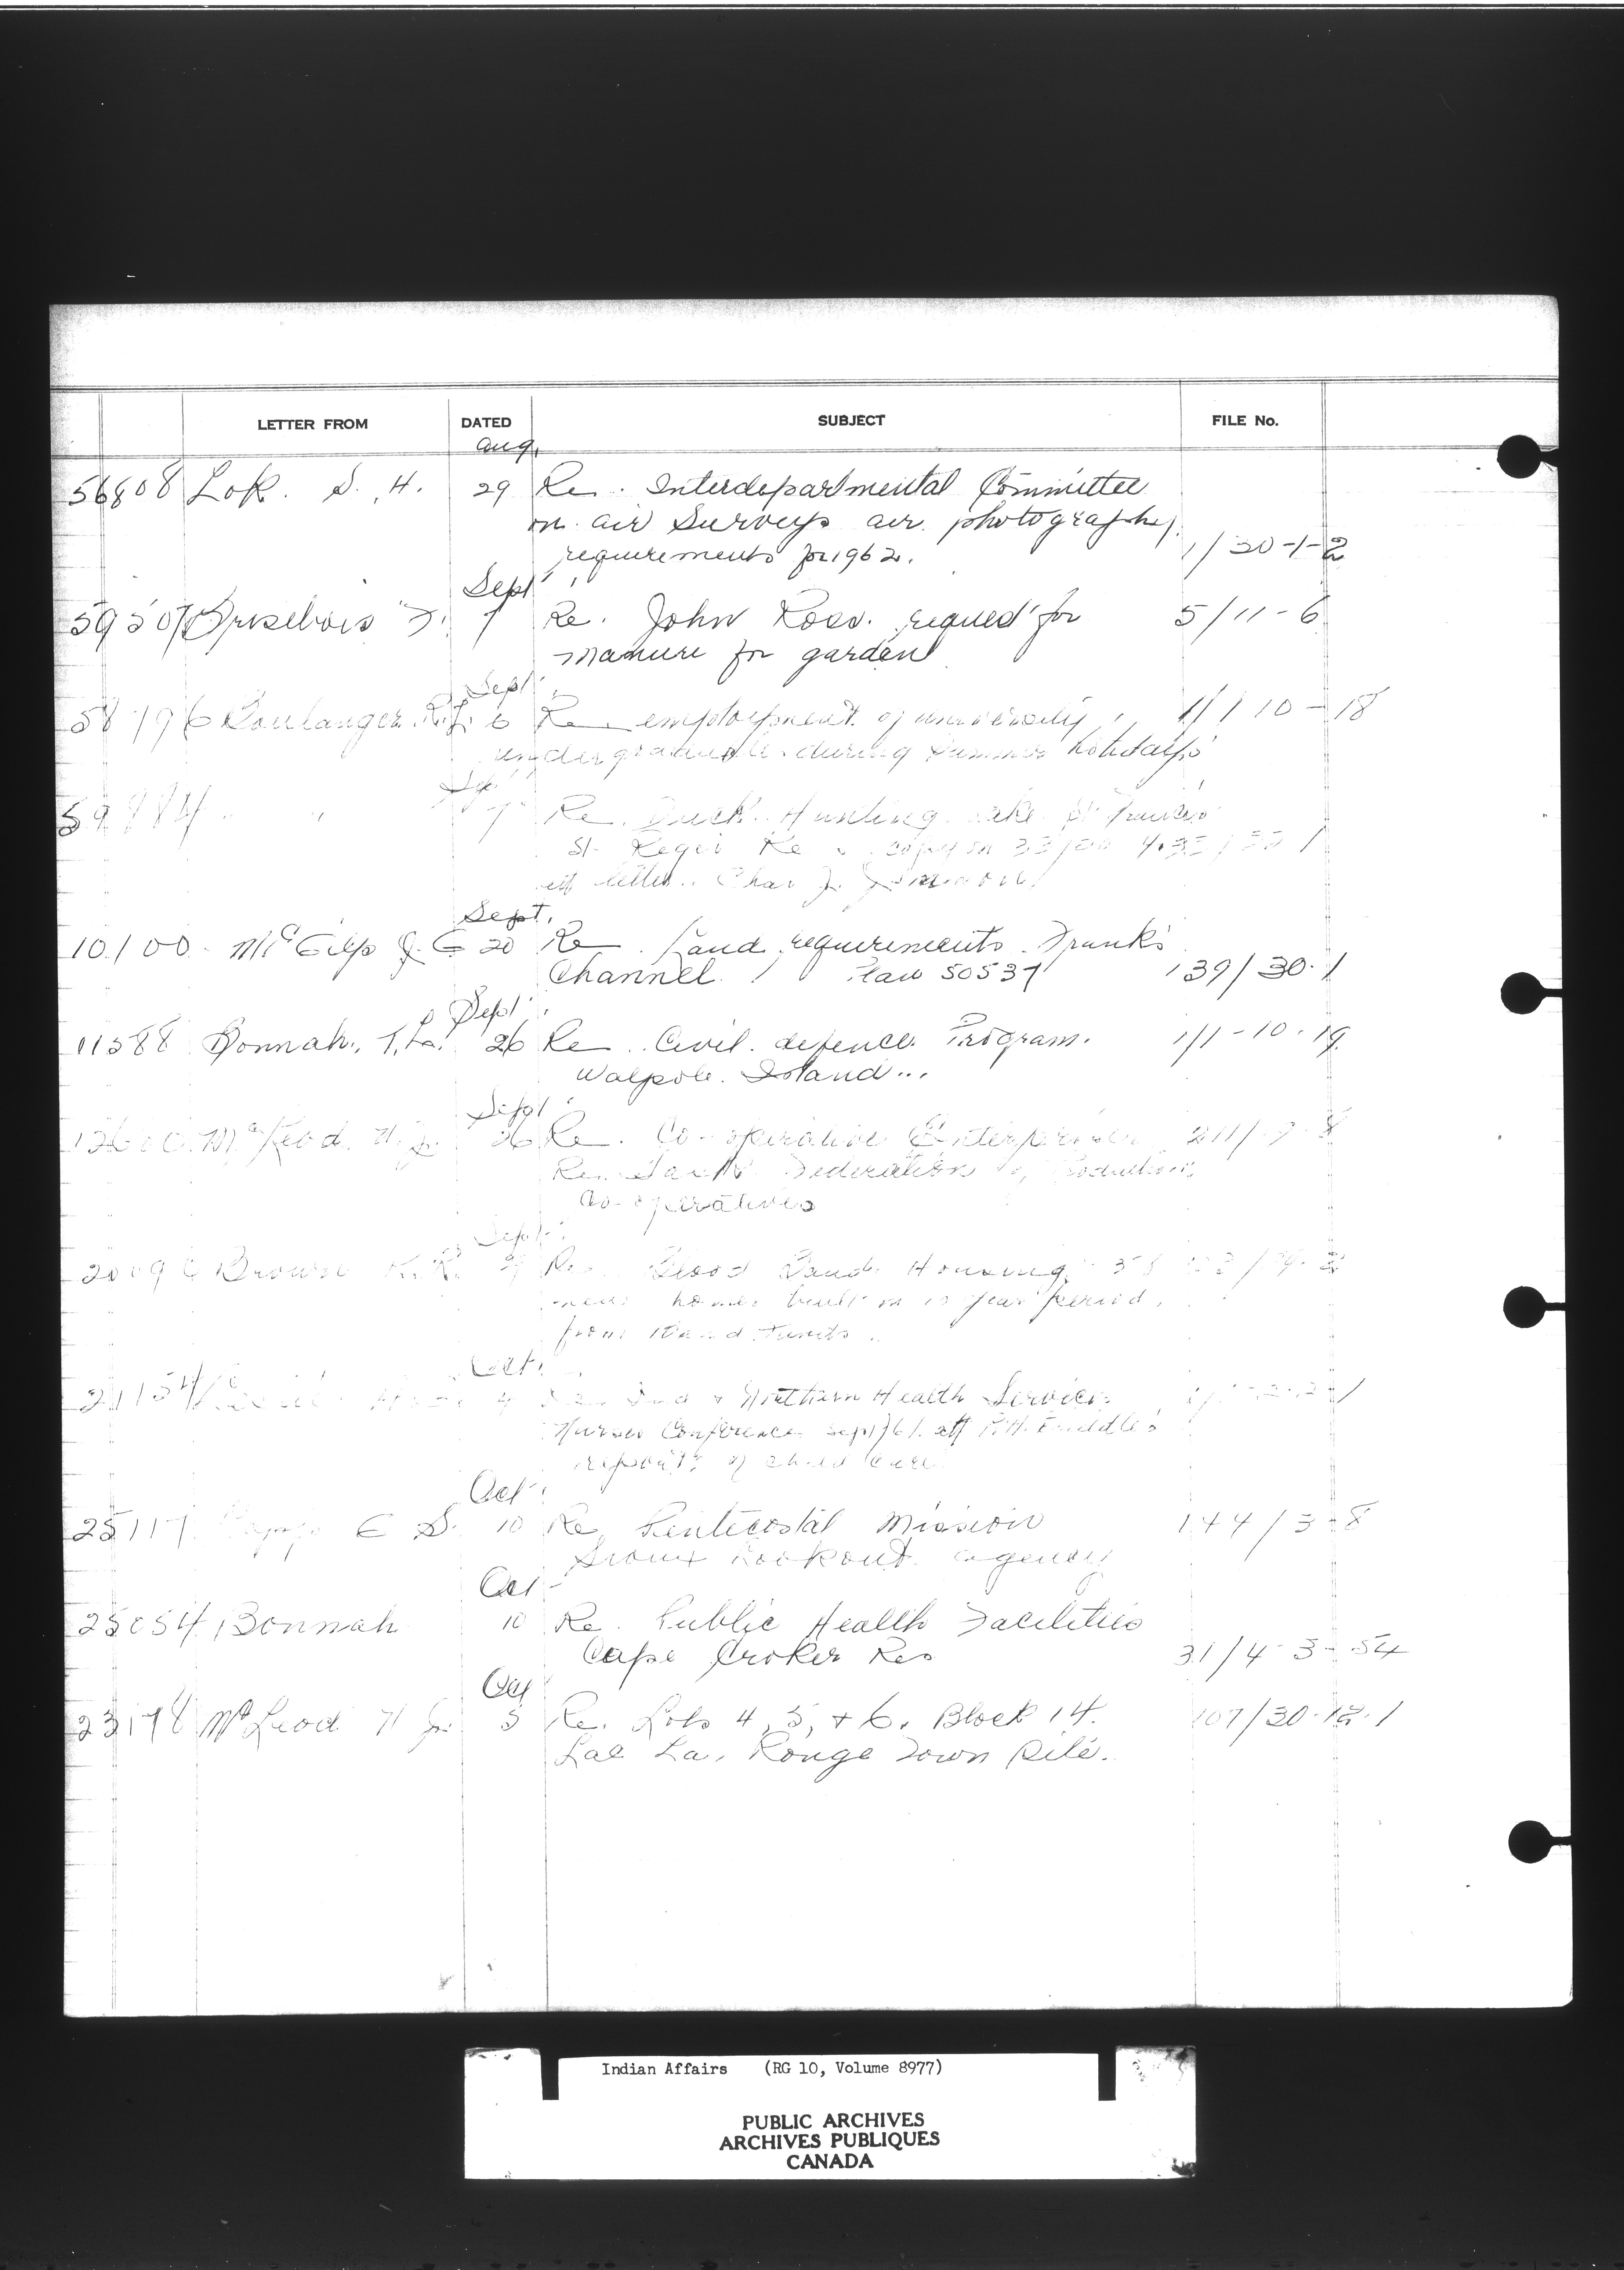 LETTER FROM DATED SUBJECT FILE No.
Aug.
56808 Lok. S. H. 29 Re. Interdepartmental Committee
on air Surveys air photography
requirements for 1962. 1/30-1-2
Sept
59507 Brisebois F. 7 Re. John Ross. request for 5/11-6
manure for garden
Sept
58796 Boulanger R.L. 6 Re employment of university 1/1-10-18
undergraduate during summer holidays
Sept
7 Re. Duck Hunting Lake St Francis
St Regis Re copy on
letter. Chas J.
Sept.
10100 McGilp J. G 20 Re Land requirements Frank's
Channel. Plan 50537 139/30-1
Sept
11588 Bonnah, T. L. 26 Re. Civil defence Program. 1/1-10-19
Walpole Island...
Sept
McLeod 26 Re. Co-operative Enterprises
Re. Sask Federation of Production
Co-operatives
Sept
Brown Re. Blood Band Housing. 58
new homes built in 10 year period,
from Band Funds.
Oct.
4 Northern Health Services
Nurses Conference Sept/61. att
reports of child care
Oct
25117 E S. 10 Re. Pentecostal Mission 144/3-8
Sioux Lookout agency
Oct
25054 Bonnah 10 Re. Public Health Facilities
Cape Croker Res 31/4-3-54
Oct
23178 McLeod 5 Re. Lots 4, 5, + 6, Block 14. 107/30-12-1
Lac La. Ronge Town Site.
Indian Affairs (RG 10, Volume 8977)
PUBLIC ARCHIVES
ARCHIVES PUBLIQUES
CANADA